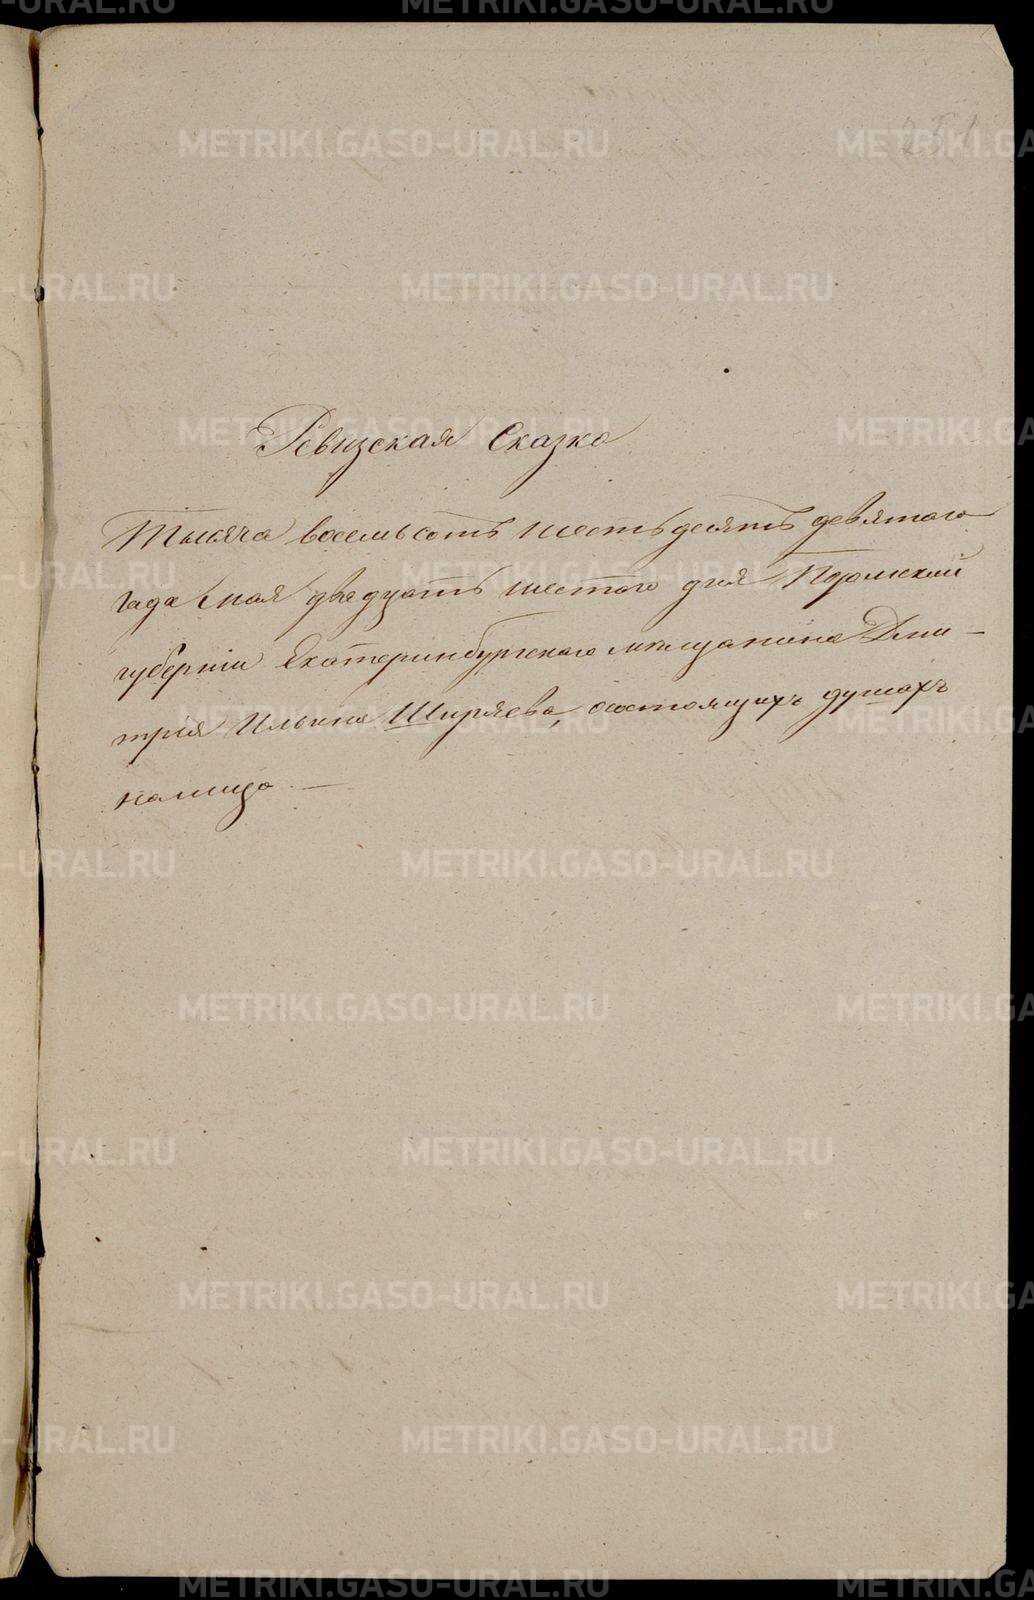 251
Ревизская Сказка
Тысяча восемьсотъ шестьдесятъ девятаго
года мая двадцать шестого дня Пермской
губерніи Екатеринбургскаго мѣщанина Дми-
трія Ильина Ширяева, состоящихъ душахъ
налицо —
METRIKI.GASO-URAL.RU